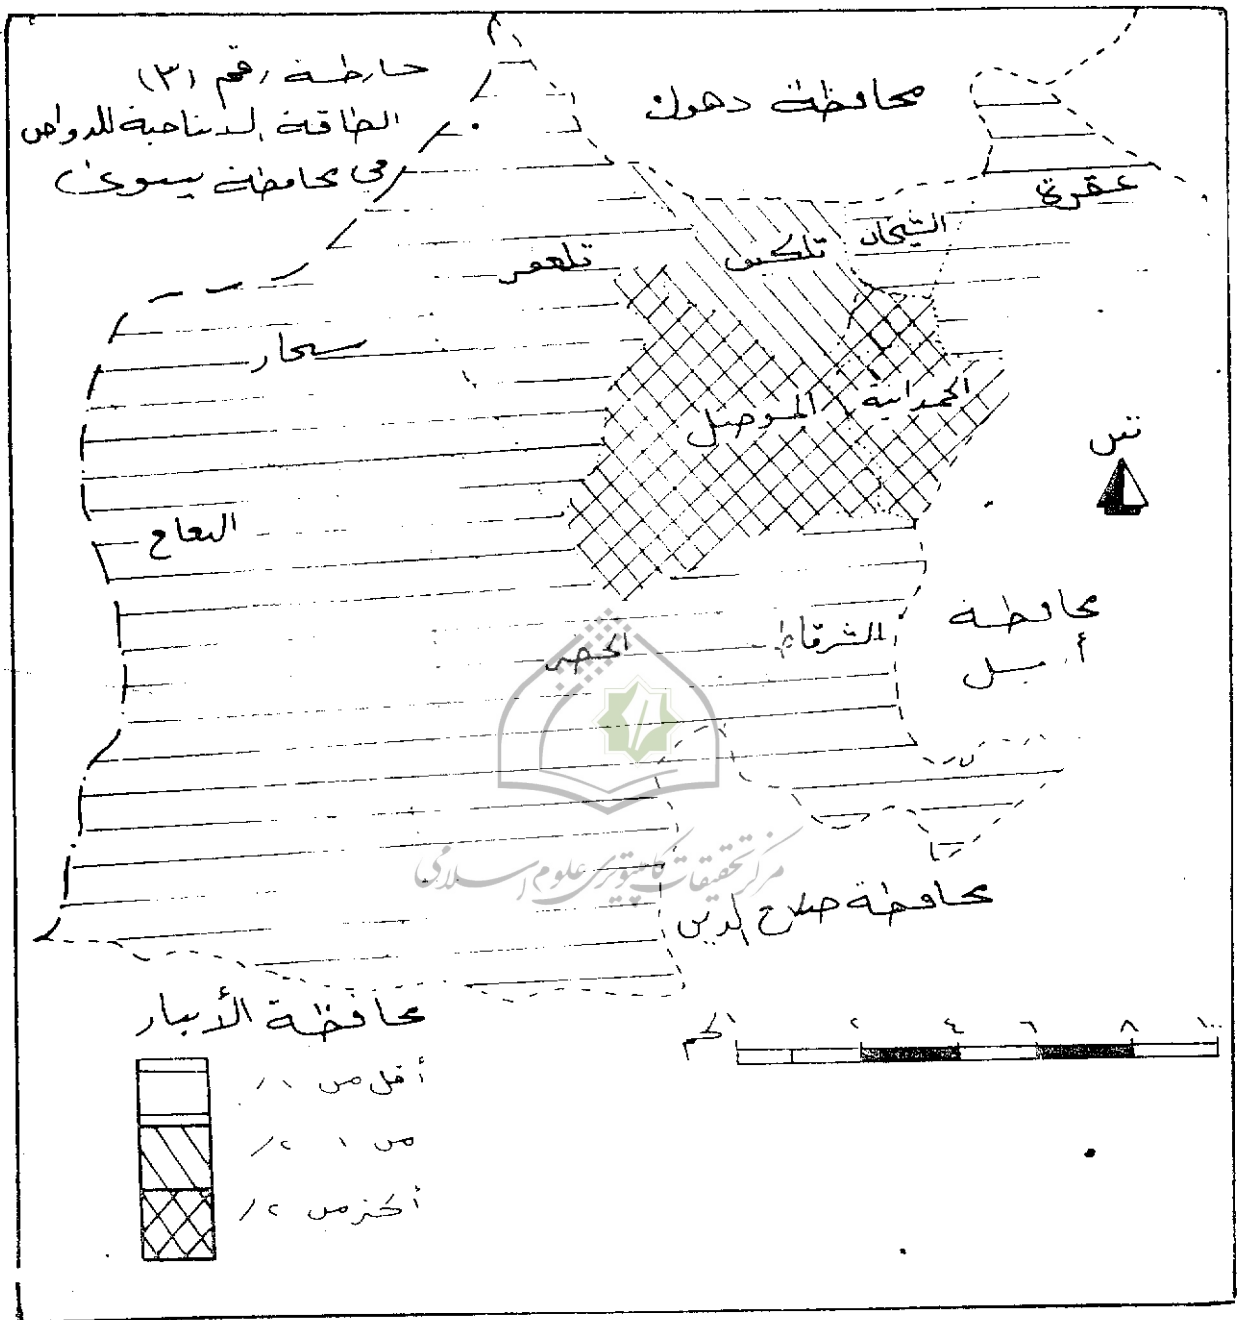 خارطة رقم (٣)
الطاقة الانتاجية للدواجن
في محافظة نينوى
محافظة دهوك
عقرة
الشيخان
تلكيف
تلعفر
سنجار
الحمدانية
الموصل
البعاج
محافظة
أربيل
الشرقاط
الحضر
مرکز تحقیقات کامپیوتری علوم اسلامی
محافظة صلاح الدين
محافظة الأنبار
كم
٢ ٤ ٦ ٨ ١٠٠
أقل من ١٪
من ١ ٢٪
أكثر من ٢٪